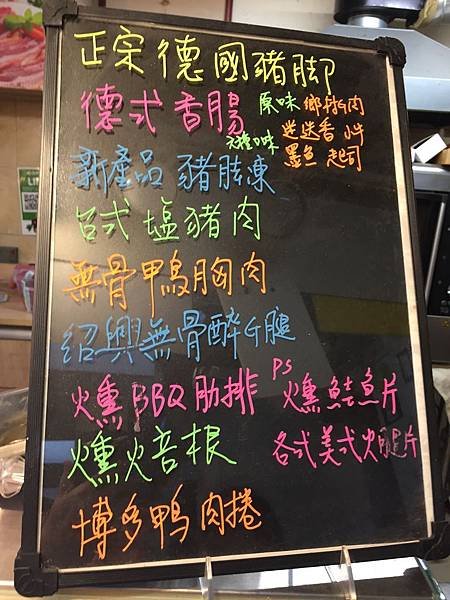 正宗德國豬脚
德式香腸 原味 鄉村肉
種味 迷迭香 小牛
墨魚 起司
新產品 豬腱凍
台式塩豬肉
無骨鴨胸肉
紹興無骨醉G腿
PS
燻BBQ肋排 燻鮭魚片
燻焙根 各式美式火腿片
博多鴨肉捲